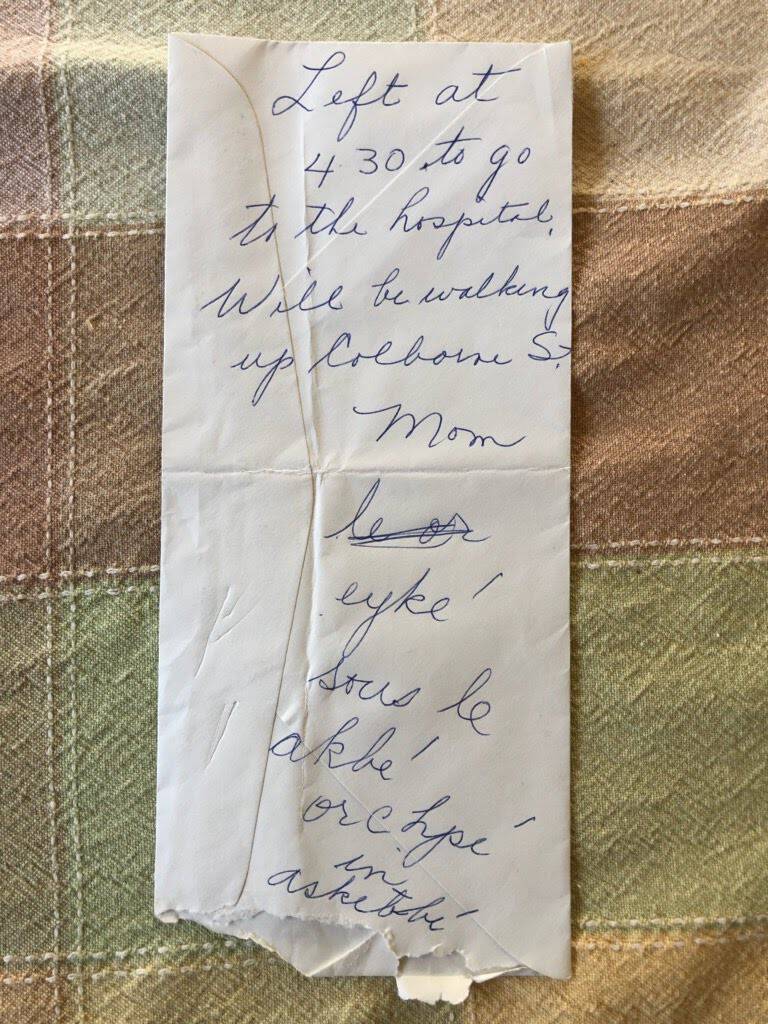 Left at
4 30 to go
to the hospital.
Will be walking
up Colborne St.
Mom
le or
eyké
sous le
akbé
orchpé
in
asketbbé